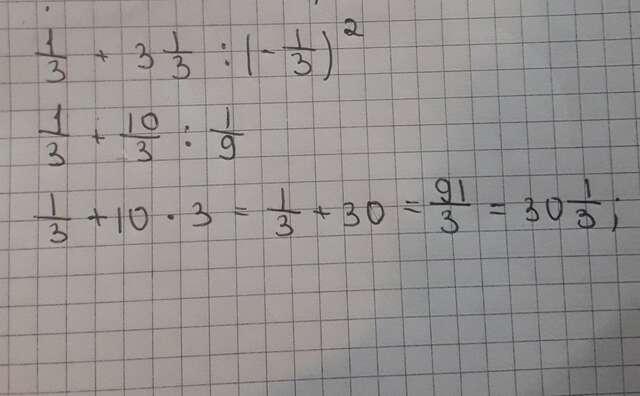 1/3 + 3 1/3 : (-1/3)²
1/3 + 10/3 : 1/9
1/3 + 10 · 3 = 1/3 + 30 = 91/3 = 30 1/3;